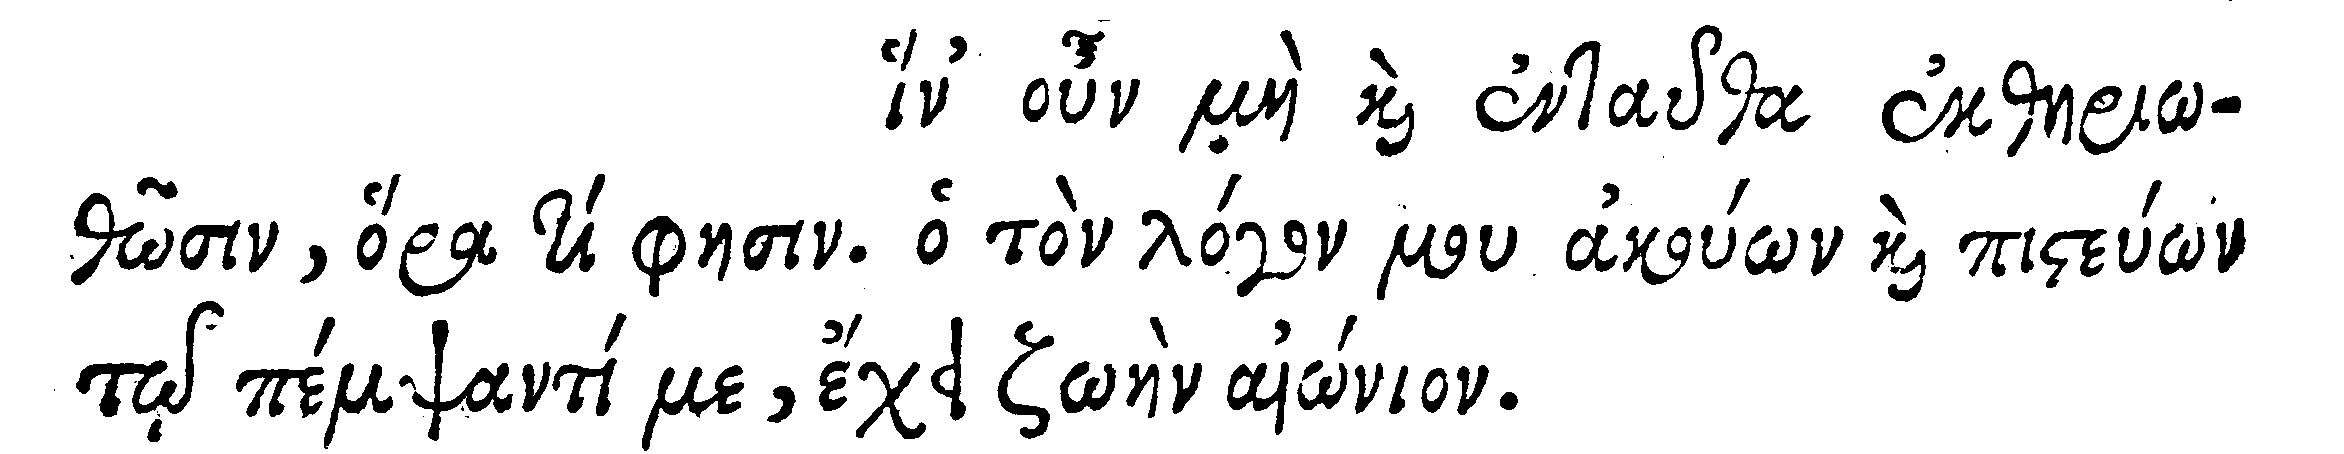 ἵν' οὖν μὴ καὶ ἐνταῦθα ἐκθηριω-
θῶσιν, ὅρα τί φησιν. ὁ τὸν λόγον μου ἀκούων καὶ πιστεύων
τῷ πέμψαντί με, ἔχει ζωὴν αἰώνιον.